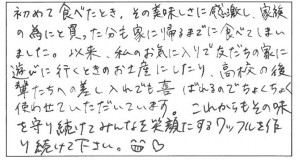 初めて食べたとき、その美味しさに感激し、家族
の為にと買った分も家に帰るまでに食べてしまい
ました。以来、私のお気に入りで友だちの家に
遊びに行くときのお土産にしたり、高校の後
輩たちへの差し入れでも喜ばれるのでちょくちょく
使わせていただいています。これからもその味
を守り続けてみんなを笑顔にするワッフルを作
り続けて下さい。